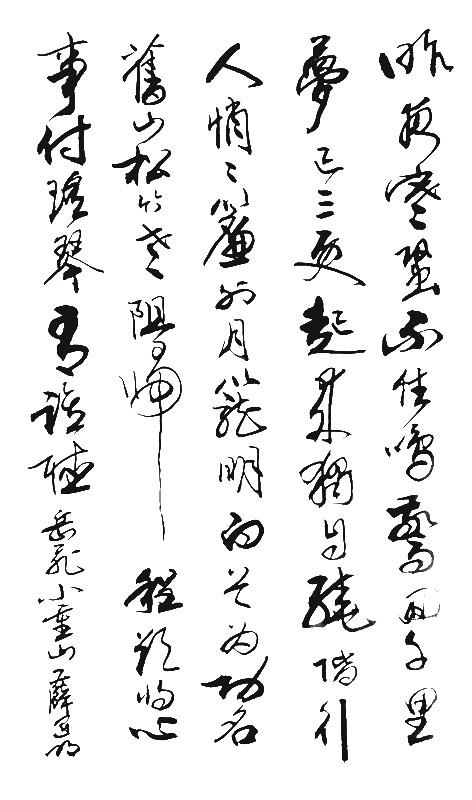 昨夜寒蛩不住鳴驚回千里
夢已三更起來獨自繞階行
人悄々簾外月籠明白首為功名
舊山松竹老阻歸程欲將心
事付瑤琴有誰聽岳飛小重山